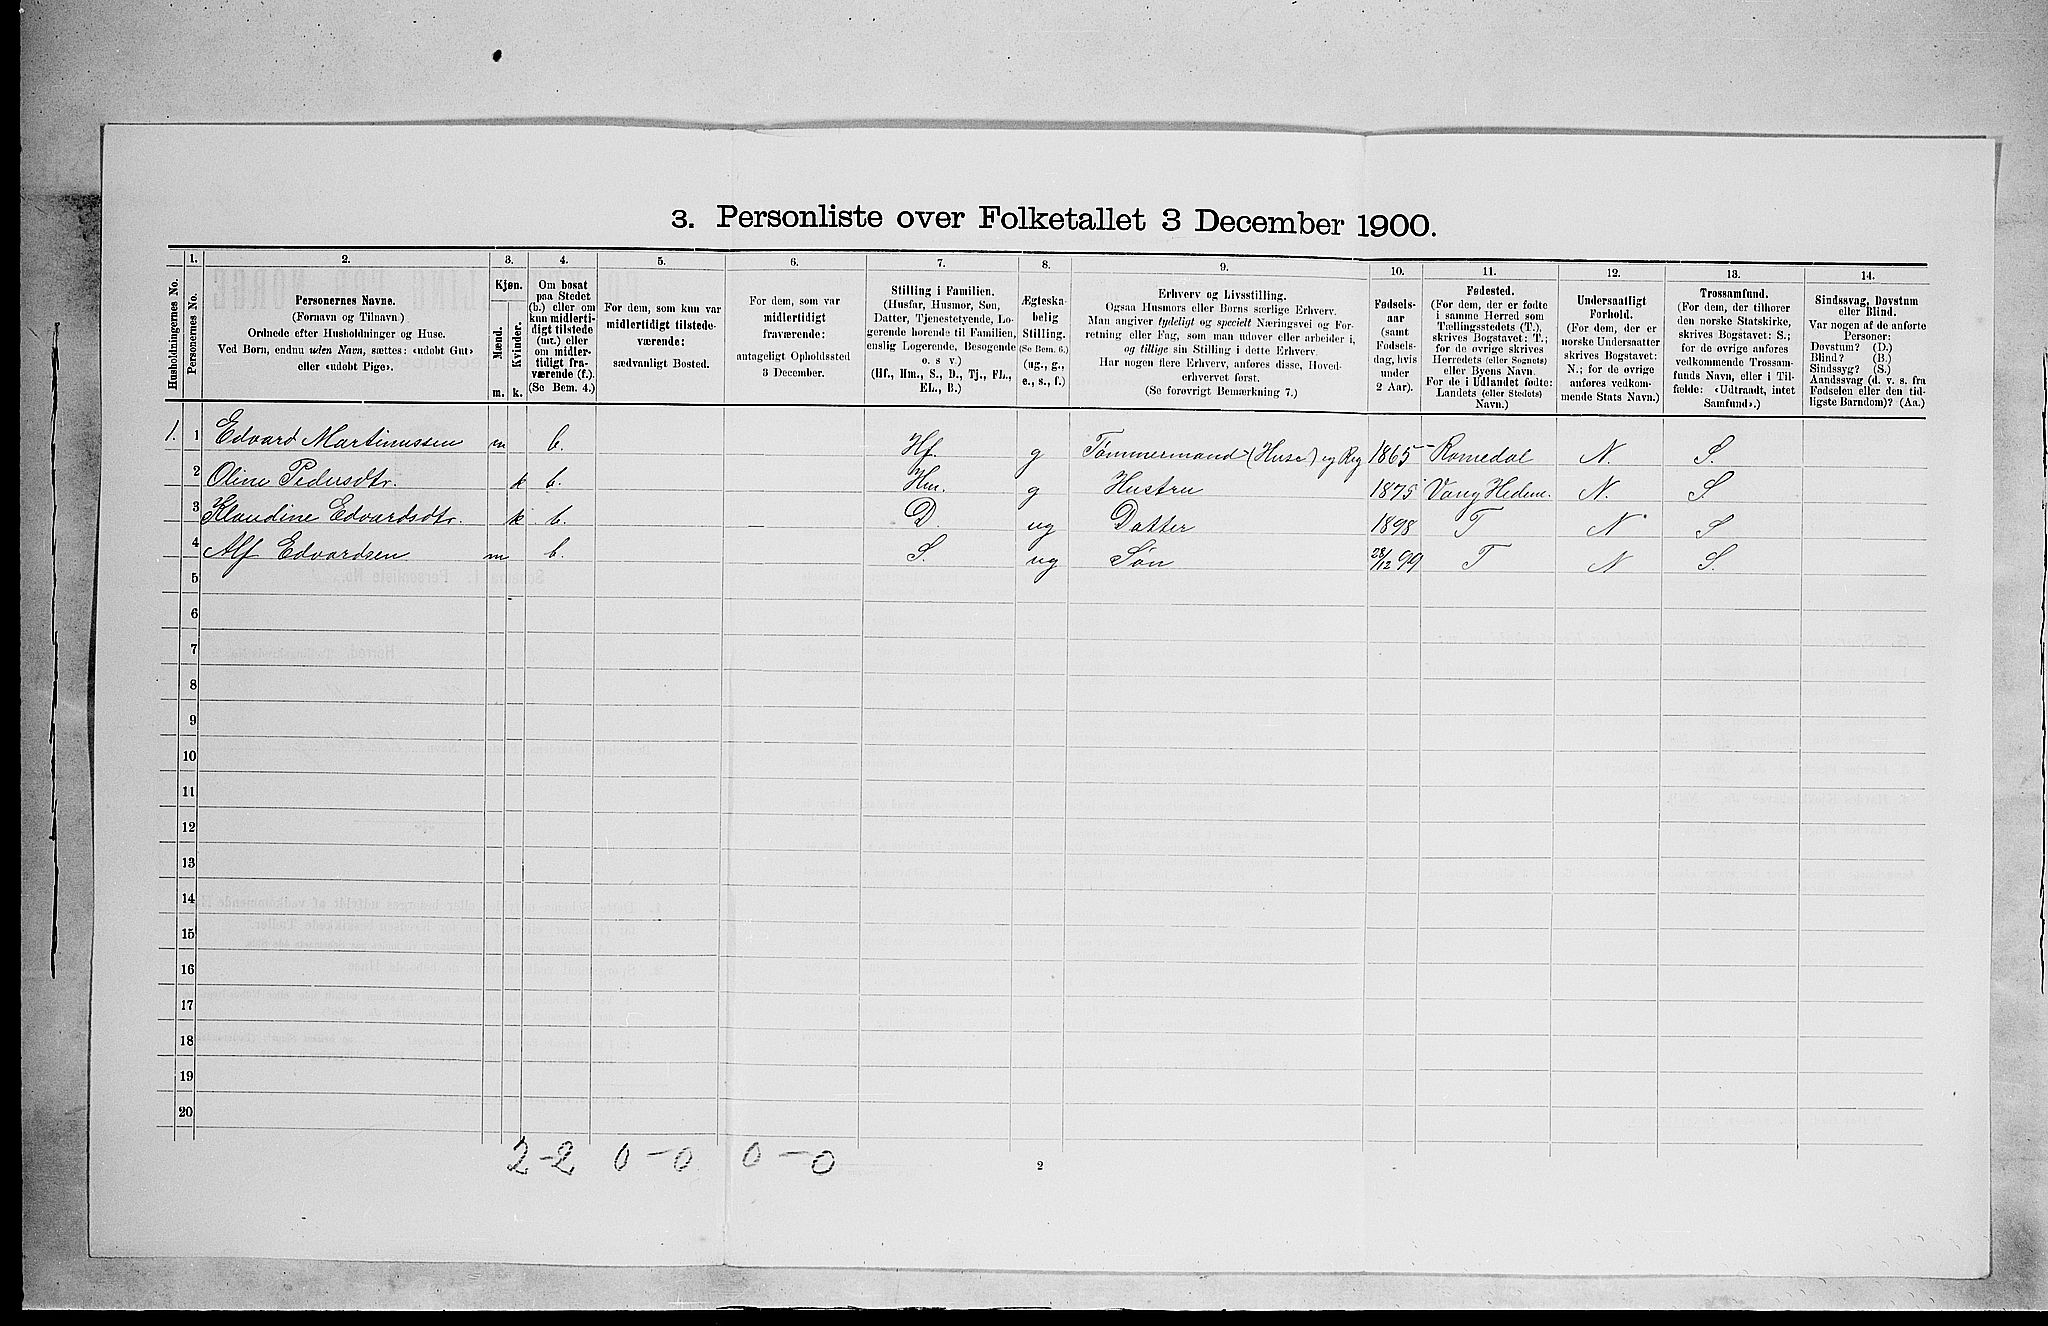 3. Personliste over Folketallet 3 December 1900.
Husholdningernes No.
1.
Personernes No.
2.
Personernes Navne.
(Fornavn og Tilnavn.)
Ordnede efter Husholdninger og Huse.
Ved Børn, endnu uden Navn, sættes: «udøbt Gut»
eller «udøbt Pige».
3.
Kjøn.
Mænd.
Kvinder.
m. k.
4.
Om bosat
paa Stedet
(b.) eller om
kun midlerti-
digt tilstede
(mt.) eller
om midler-
tidigt fra-
værende (f.).
(Se Bem. 4.)
5.
For dem, som kun var
midlertidigt tilstede-
værende:
sædvanligt Bosted.
6.
For dem, som var
midlertidigt
fraværende:
antageligt Opholdssted
3 December.
7.
Stilling i Familien.
(Husfar, Husmor, Søn,
Datter, Tjenestetyende, Lo-
gerende hørende til Familien,
enslig Logerende, Besøgende
o. s v.)
(Hf., Hm., S., D., Tj., FL.,
EL., B.)
8.
Ægteska-
belig
Stilling.
(Se Bem. 6.)
(ug., g.,
e., s., f.)
9.
Erhverv og Livsstilling.
Ogsaa Husmors eller Børns særlige Erhverv.
Man angiver tydeligt og specielt Næringsvei og For-
retning eller Fag, som man udøver eller arbeider i,
og tillige sin Stilling i dette Erhverv.
Har nogen flere Erhverv, anføres disse, Hoved-
erhvervet først.
(Se forøvrigt Bemærkning 7.)
10.
Fødsels-
aar
(samt
Fødsels-
dag, hvis
under
2 Aar).
11.
Fødested.
(For dem, der er fødte
i samme Herred som
Tællingsstedets (T.),
skrives Bogstavet: T.;
for de øvrige skrives
Herredets (eller Sognets)
eller Byens Navn.
For de i Udlandet fødte:
Landets (eller Stedets)
Navn.)
12.
Undersaatligt
Forhold.
(For dem, der er
norske Undersaatter
skrives Bogstavet:
N.; for de øvrige
anføres vedkom-
mende Stats Navn.)
13.
Trossamfund.
(For dem, der tilhører
den norske Statskirke,
skrives Bogstavet: S.;
for de øvrige anføres
vedkommende Trossam-
funds Navn, eller i Til-
fælde: «Udtraadt, intet
Samfund».)
14.
Sindssvag, Døvstum
eller Blind.
Var nogen af de anførte
Personer:
Døvstum? (D.)
Blind? (B.)
Sindssyg? (S.)
Aandssvag (d. v. s. fra
Fødselen eller den tid-
ligste Barndom)? (Aa.)
1. 1 Edvard Martinussen m b. Hf. g Tømmermand (Huse) og 1865 Romedal N. S.
2 Oline Pedersdtr. k b. Hm. g Hustru 1875 Vang Hedem. N. S.
3 Klaudine Edvardsdtr. k b. — D. ug Datter 1898 T N S
4 Alf Edvardsen m b. S. ug Søn 28/12 99 T N S.
5
6
7
8
9
10
11
12
13
14
15
16
17
18
19
20
2-2 0-0 0-0
2